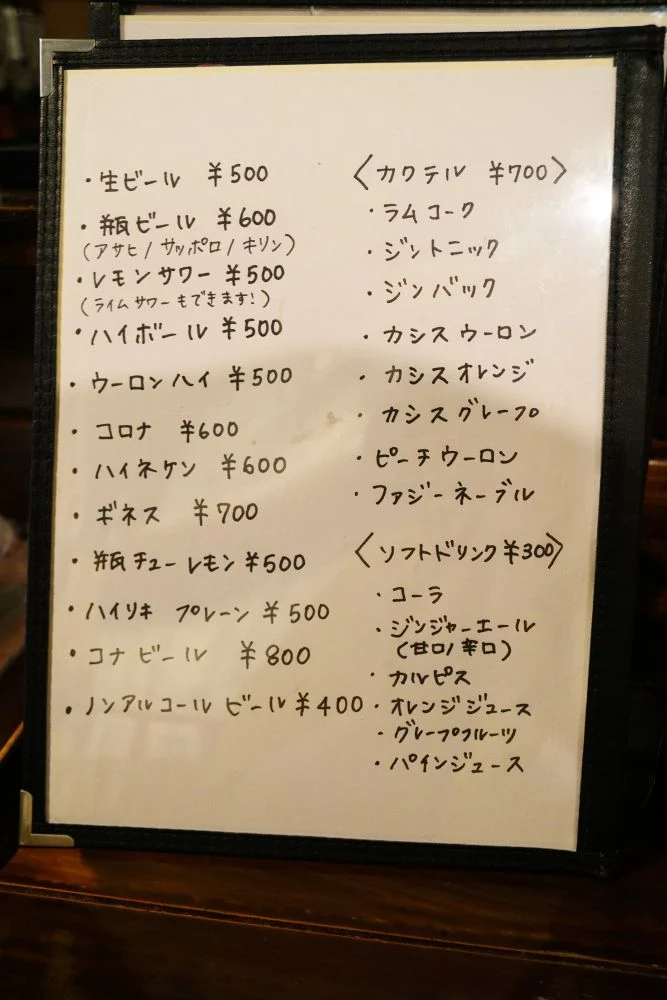 ・生ビール ¥500
・瓶ビール ¥600
(アサヒ/サッポロ/キリン)
・レモンサワー ¥500
(ライムサワーもできます!)
・ハイボール ¥500
・ウーロンハイ ¥500
・コロナ ¥600
・ハイネケン ¥600
・ギネス ¥700
・瓶チューレモン ¥500
・ハイリキ プレーン ¥500
・コナビール ¥800
・ノンアルコールビール ¥400
〈カクテル ¥700〉
・ラムコーク
・ジントニック
・ジンバック
・カシスウーロン
・カシスオレンジ
・カシスグレープ
・ピーチウーロン
・ファジーネーブル
〈ソフトドリンク ¥300〉
・コーラ
・ジンジャーエール
(甘口/辛口)
・カルピス
・オレンジジュース
・グレープフルーツ
・パインジュース